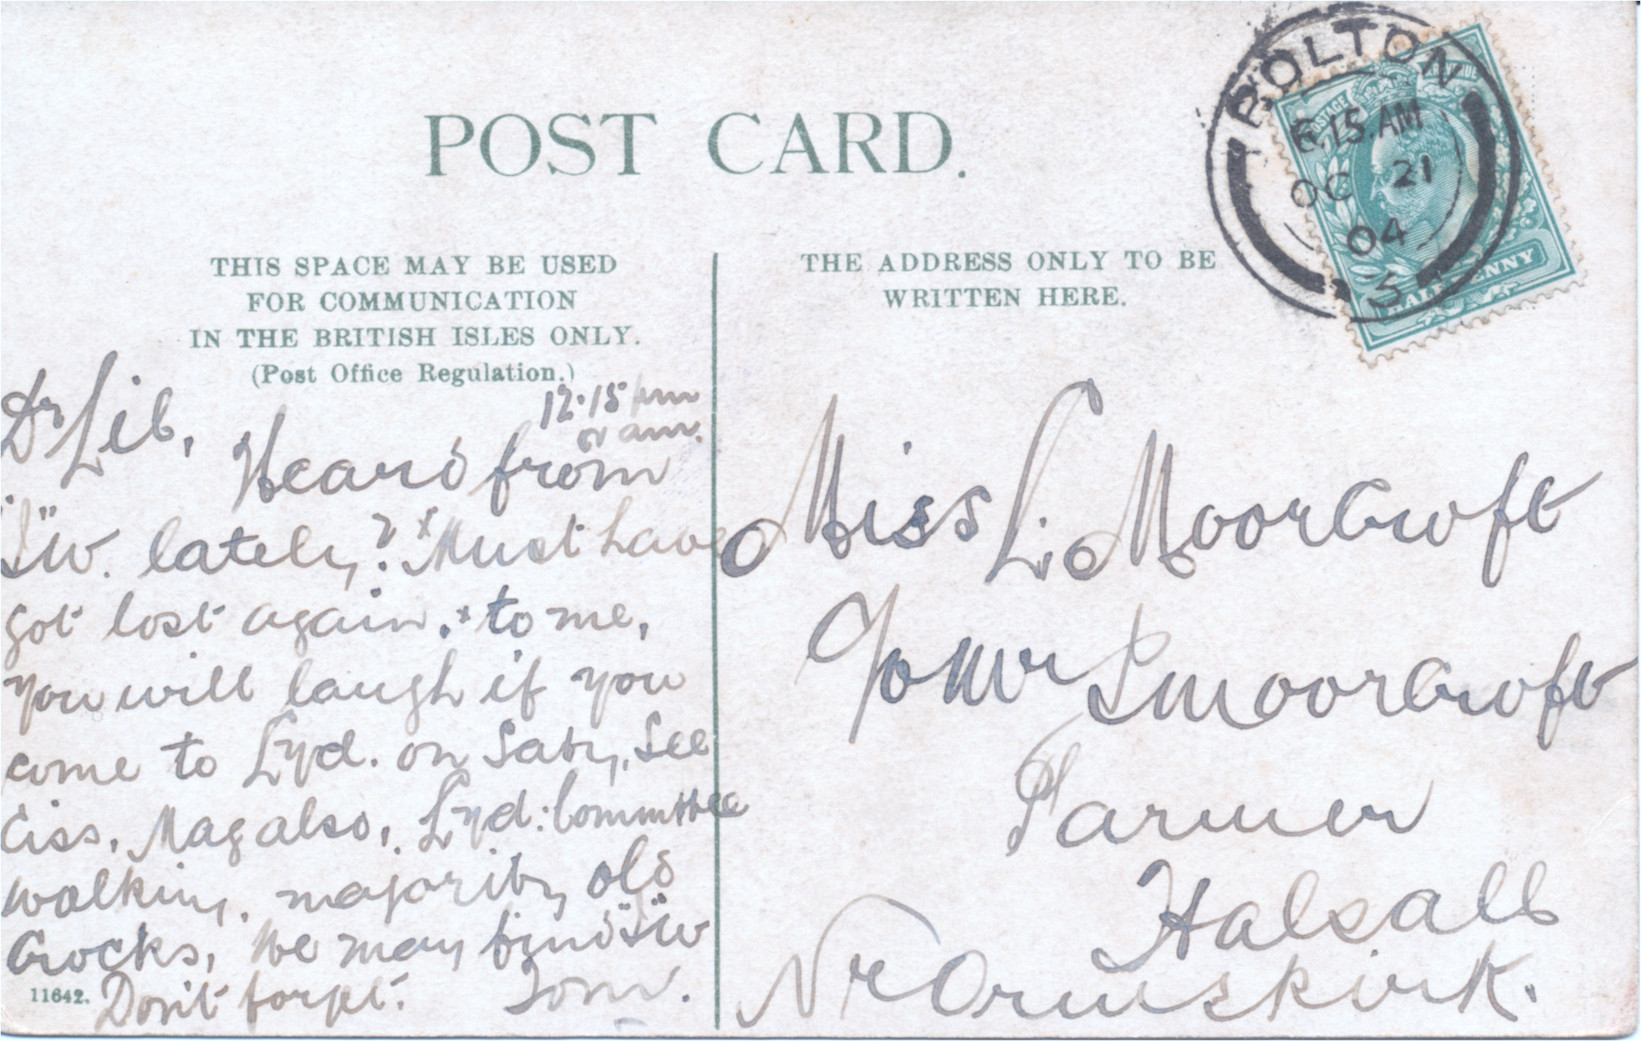 POST CARD.
BOLTON
6.15 AM
OC 21
04
3
POSTAGE
THIS SPACE MAY BE USED
FOR COMMUNICATION
IN THE BRITISH ISLES ONLY.
(Post Office Regulation.)
THE ADDRESS ONLY TO BE
WRITTEN HERE.
12.15 pm
or am.
Dr Lib,
Heard from
W. lately? x Must have
got lost again. x to me,
you will laugh if you
come to Lyd. on Saty, See
Ciss, Mag also, Lyd: Committee
walking. majority old
Crocks, We may find W
Don't forget. Tom.
11642.
Miss L. Moorcroft
Moorcroft
Farmer
Halsall
Nr Ormskirk.